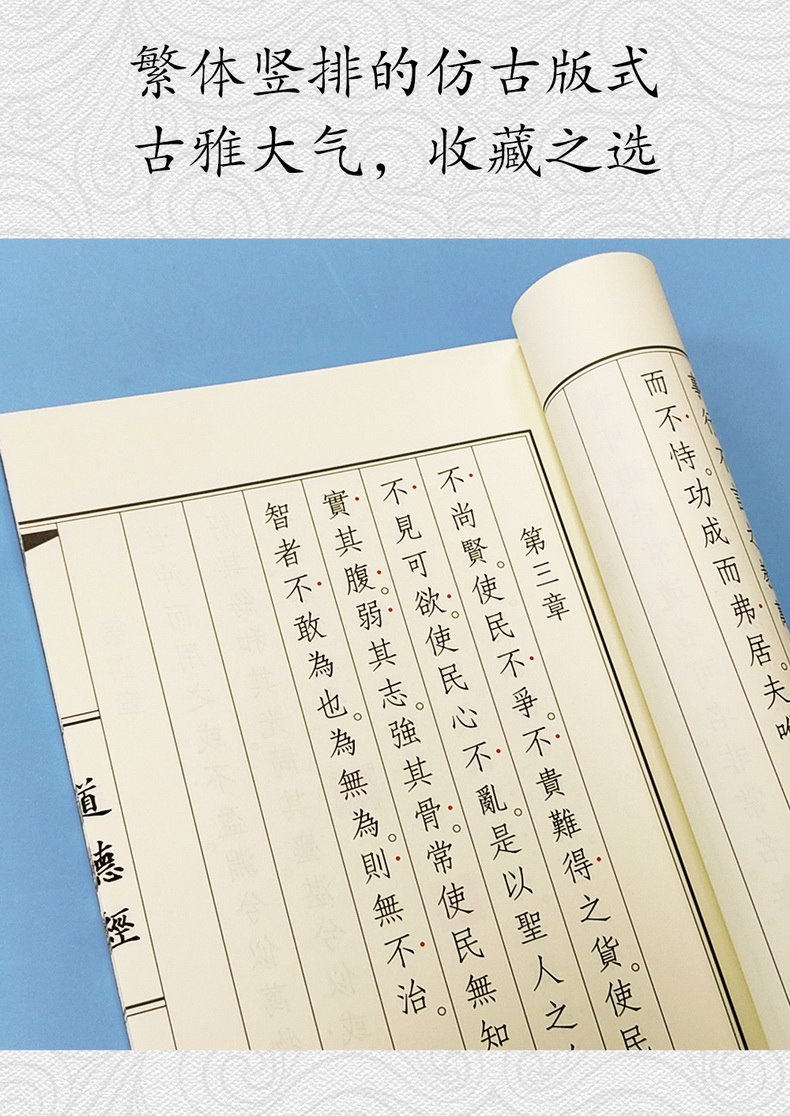 繁体竖排的仿古版式
古雅大气，收藏之选
而不恃。功成而弗居。夫
第三章
不尚賢。使民不爭。不貴難得之貨。使民
不見可欲。使民心不亂。是以聖人之
實其腹。弱其志。強其骨。常使民無知
智者不敢為也。為無為。則無不治。
道德經